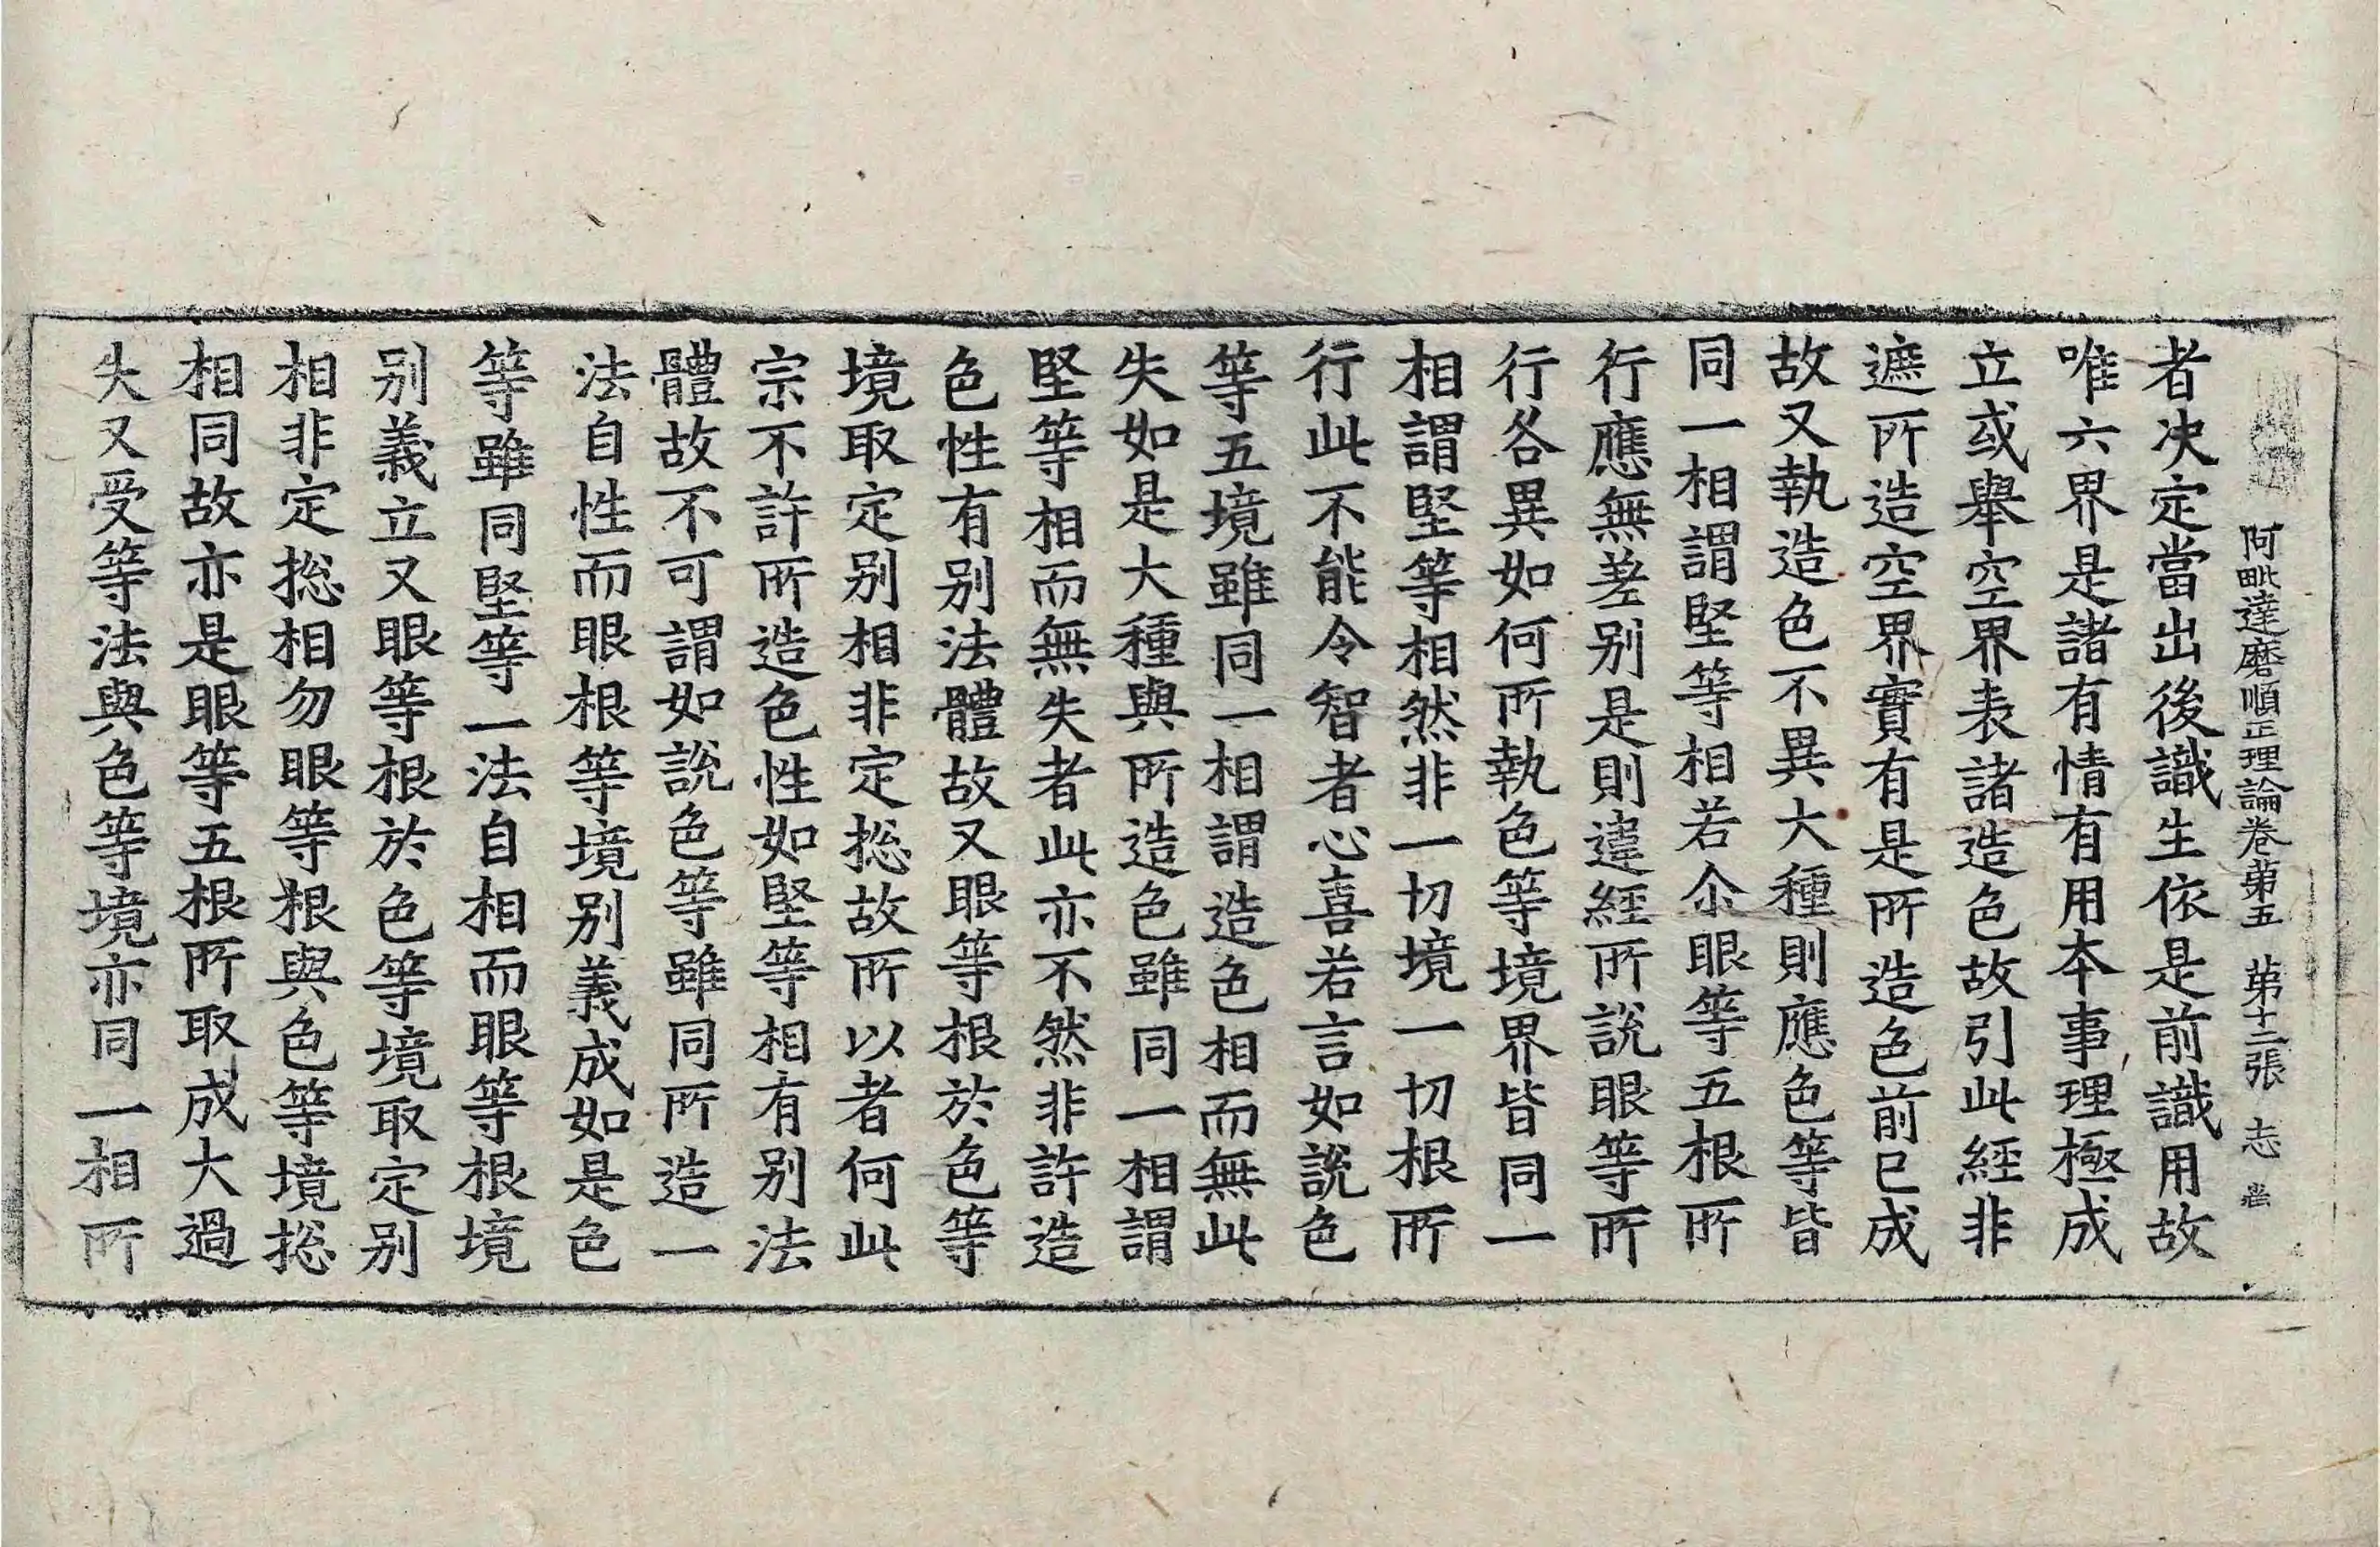 阿毗達磨順正理論卷苐五　苐十二張　志
者决定當出後識生依是前識用故
唯六界是諸有情有用本事理極成
立或舉空界表諸造色故引此經非
遮所造空界實有是所造色前已成
故又執造色不異大種則應色等皆
同一相謂堅等相若尒眼等五根所
行應無差别是則違經所說眼等所
行各異如何所執色等境界皆同一
相謂堅等相然非一切境一切根所
行此不能令智者心喜若言如說色
等五境雖同一相謂造色相而無此
失如是大種與所造色雖同一相謂
堅等相而無失者此亦不然非許造
色性有别法體故又眼等根於色等
境取定别相非定揔故所以者何此
宗不許所造色性如堅等相有别法
體故不可謂如說色等雖同所造一
法自性而眼根等境别義成如是色
等雖同堅等一法自相而眼等根境
别義立又眼等根於色等境取定别
相非定揔相勿眼等根與色等境揔
相同故亦是眼等五根所取成大過
失又受等法與色等境亦同一相所